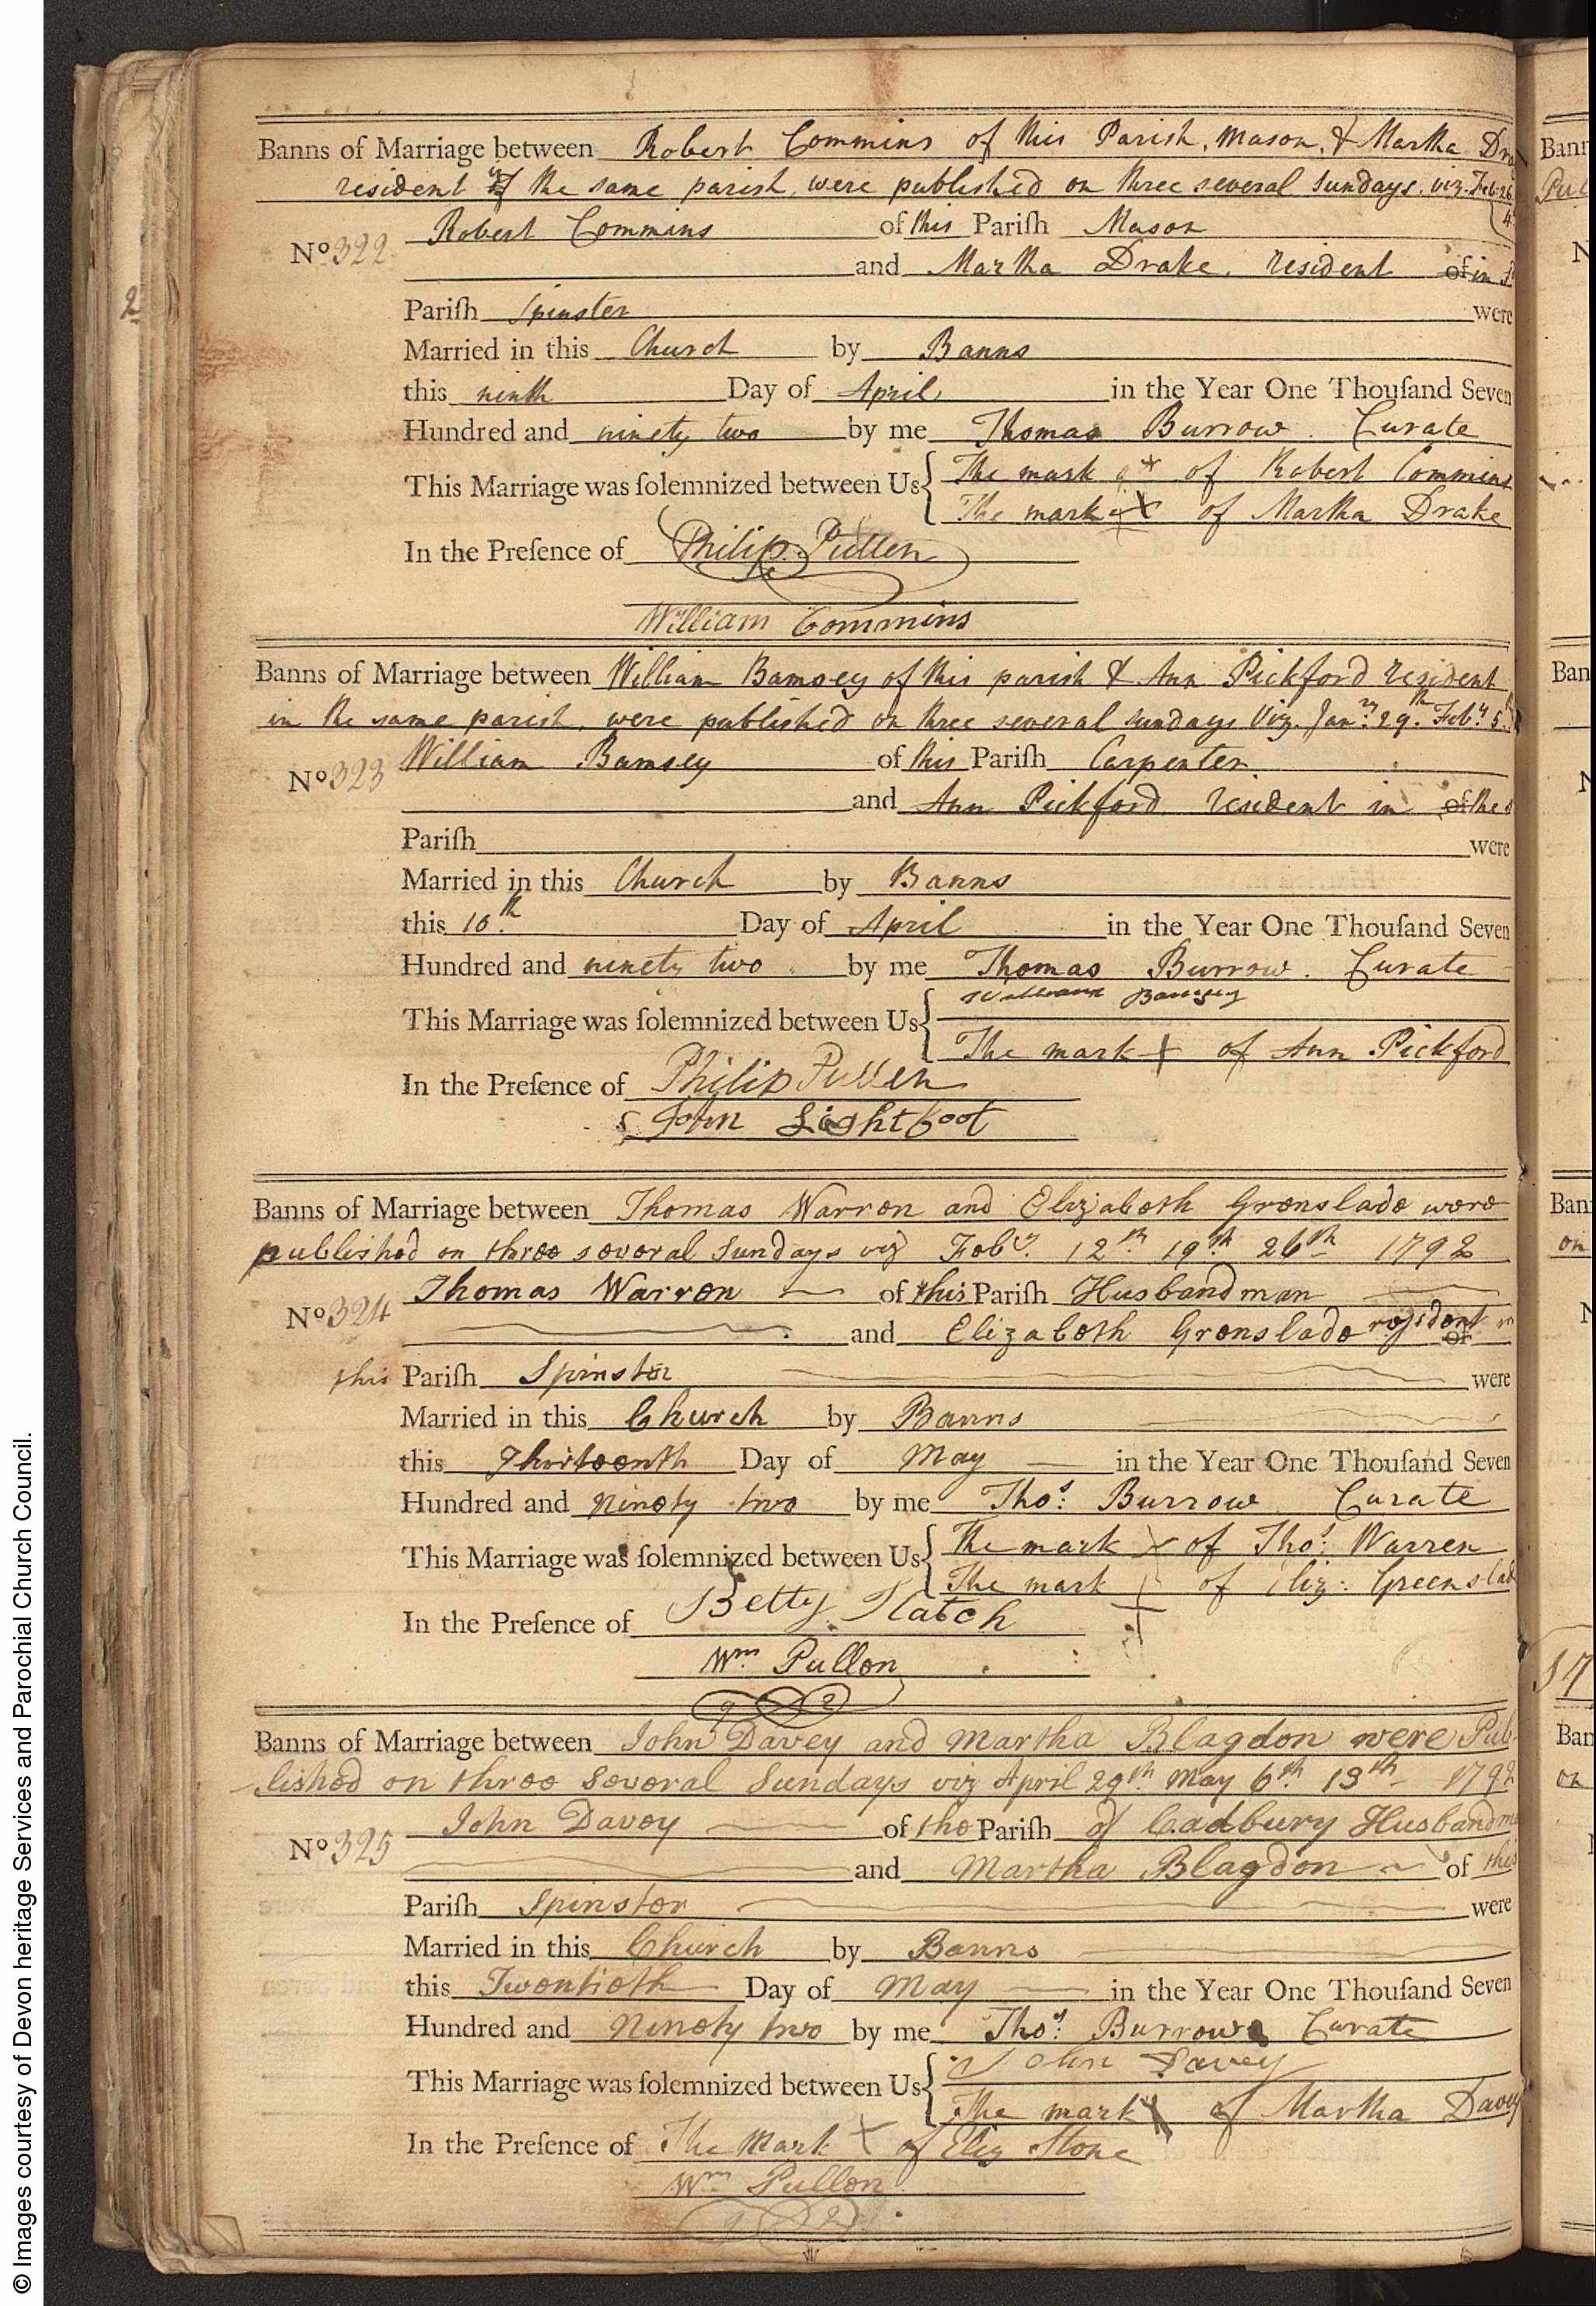 Banns of Marriage between Robert Commins of this Parish, Mason, & Martha
resident in the same parish, were published on three several Sundays. viz. Feb. 26
Robert Commins of this Pariſh Mason
Nº 322
and Martha Drake, resident of in
Pariſh Spinster were
Married in this Church by Banns
this ninth Day of April, in the Year One Thouſand Seven
Hundred and ninety two by me Thomas Burrow. Curate
The mark * of Robert Commins
This Marriage was ſolemnized between Us
The mark X of Martha Drake
In the Preſence of Philip Pullen
William Commins
Banns of Marriage between William Bamsey of this parish & Ann Pickford resident
in the same parish, were published on three several Sundays Viz. Janry. 29th. Feby. 5
William Bamsey of this Pariſh Carpenter
Nº 323
and Ann Pickford, resident in of the
Pariſh were
Married in this Church by Banns
this 10th. Day of April in the Year One Thouſand Seven
Hundred and ninety two by me Thomas Burrow. Curate
William Bamsey
This Marriage was ſolemnized between Us
The mark + of Ann Pickford
In the Preſence of Philip Pullen
John Lightfoot
Banns of Marriage between Thomas Warren and Elizabeth Grenslade were
published on three several Sundays viz Feby. 12th 19th. 26th 1792
Thomas Warren of this Pariſh Husbandman
Nº 324
and Elizabeth Grenslade resident of in
this Pariſh Spinster were
Married in this Church by Banns
this Thirteenth Day of May in the Year One Thouſand Seven
Hundred and Ninety two by me Thos: Burrow Curate
The mark X of Thos: Warren
This Marriage was ſolemnized between Us
The mark + of Eliz: Greenslad
In the Preſence of Betty Hatch
Wm Pullen
Banns of Marriage between John Davey and Martha Blagdon were Pub
lished on three several Sundays viz April 29th May 6th 13th 1792
John Davey of the Pariſh of Cadbury Husbandm
Nº 325
and Martha Blagdon of this
Pariſh Spinster were
Married in this Church by Banns
this Twentieth Day of May in the Year One Thouſand Seven
Hundred and Ninety two by me Thos: Burrow Curate
John Davey
This Marriage was ſolemnized between Us
The mark X of Martha Davey
In the Preſence of The Mark X of Eliz Stone
Wm Pullen
© Images courtesy of Devon heritage Services and Parochial Church Council.